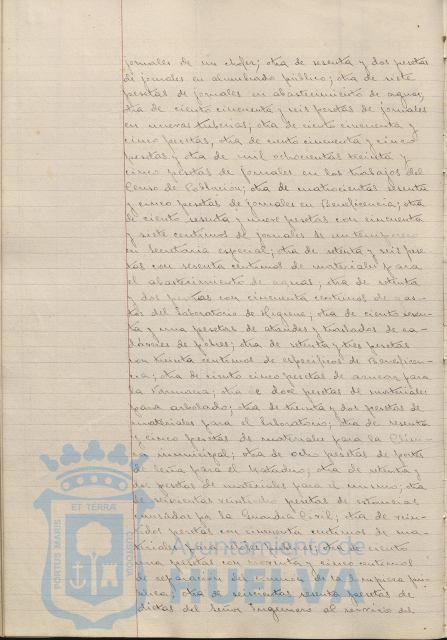 jornales de un chofer; otra de sesenta y dos pesetas
de jornales en alumbrado público; otra de siete
pesetas de jornales en abastecimiento de aguas;
otra de ciento cincuenta y seis pesetas de jornales
en nuevas tuberías; otra de ciento cincuenta y
cinco pesetas, otra de ciento cincuenta y cinco
pesetas y otra de mil ochocientas treinta y
cinco pesetas de jornales en los trabajos del
Censo de Población; otra de cuatrocientas sesenta
y cinco pesetas de jornales en Beneficencia; otra
de ciento sesenta y nueve pesetas con cincuenta
y siete centimos de jornales de un temporero
en Secretaría especial; otra de setenta y seis pese
tas con sesenta centimos de materiales para
el abastecimiento de aguas; otra de setenta
y dos pesetas con cincuenta centimos de gas-
tos del Laboratorio de Higiene; otra de ciento sesen
ta y una pesetas de ataudes y traslados de ca-
dáveres de pobres; otra de setenta y tres pesetas
con treinta centimos de específicos de Beneficen-
cia; otra de ciento cinco pesetas de azucar para
la Farmacia; otra de doce pesetas de materiales
para arbolado; otra de treinta y dos pesetas de
materiales para el Laboratorio; otra de sesenta
y cinco pesetas de materiales para la Clíni-
ca municipal; otra de ocho pesetas de portes
de leña para el Matadero; otra de setenta y
dos pesetas de materiales para el mismo; otra
de quinientas veintiocho pesetas de estancias
causadas por la Guardia Civil; otra de vein-
tidos pesetas con cincuenta centimos de ma-
teriales para otra de ciento
una pesetas con noventa y cinco centimos
de reparación del camión de la limpieza pú-
blica; otra de seiscientas sesenta pesetas de
dietas del Señor Ingeniero al servicio del
PORTUS MARIS ET TERRA CUSTODIA
Ayuntamiento de
HUELVA